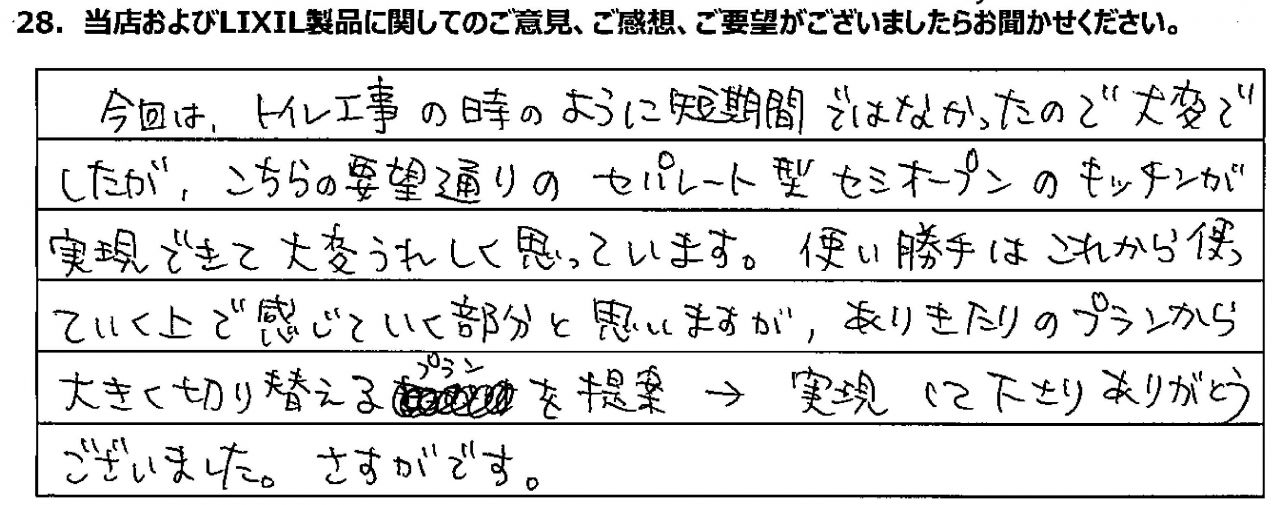 28. 当店およびLIXIL製品に関してのご意見、ご感想、ご要望がございましたらお聞かせください。
今回は、トイレ工事の時のように短期間ではなかったので大変で
したが、こちらの要望通りの セパレート型 セミオープンのキッチンが
実現できて大変うれしく思っています。使い勝手はこれから使っ
ていく上で感じていく部分と思いますが、ありきたりのプランから
大きく切り替えるプランを提案→実現して下さりありがとう
ございました。さすがです。